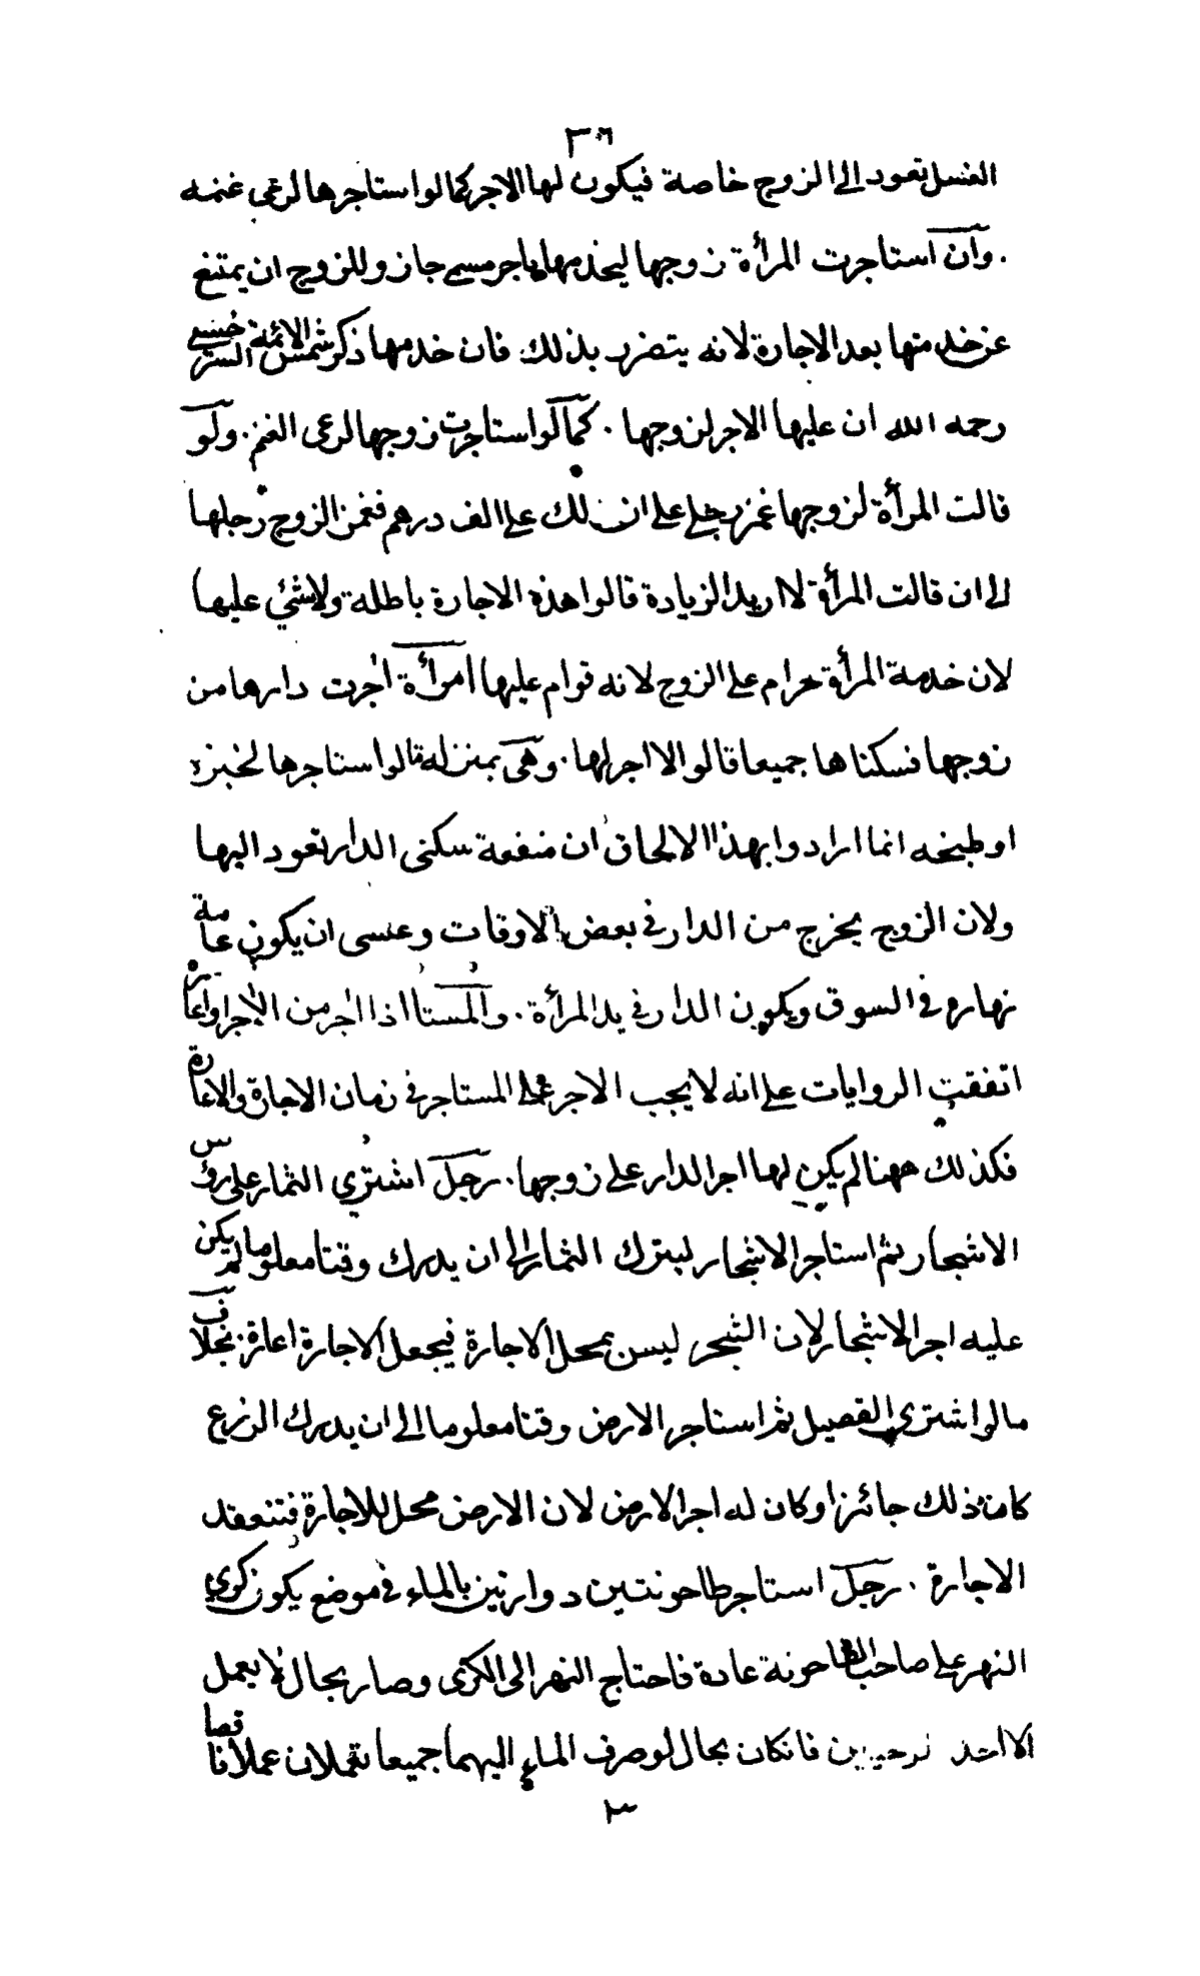 ٣٦
الغسل تعود الى الزوج خاصة فيكون لها الاجر كما لو استاجرها لرعى غنمه
. وان استاجرت المرأة زوجها ليخدمها باجر مسمى جاز وللزوج ان يمتنع
عن خدمتها بعد الاجارة لانه يتضرر بذلك فان خدمها ذكر شمس الائمة السرخسى
رحمه الله ان عليها الاجر لزوجها . كما لو استاجرت زوجها لرعى الغنم . ولو
قالت المرأة لزوجها غمز رجلى على ان لك على الف درهم فغمز الزوج رجلها
الى ان قالت المرأة لا اريد الزيادة قالوا هذه الاجارة باطلة ولا شئ عليها
لان خدمة المرأة حرام على الزوج لانه قوام عليها امرأة اجرت دارها من
زوجها فسكناها جميعا قالوا لا اجر لها . وهى بمنزلة ما لو استاجرها لخبزه
او طبخه انما ارادوا بهذا الالحاق ان منفعة سكنى الدار تعود اليها
ولان الزوج يخرج من الدار فى بعض الاوقات وعسى ان يكون عامة
نهاره فى السوق ويكون الدار فى يد المرأة . والمستا اذا اجر من الاجر او اعاره
اتفقت الروايات على انه لا يجب الاجر على المستاجر فى زمان الاجارة والاعارة
فكذلك ههنا لم يكن لها اجر الدار على زوجها . رجل اشترى الثمار على رؤس
الاشجار ثم استاجر الاشجار ليترك الثمار الى ان يدرك وقتا معلوما لم يكن
عليه اجر الاشجار لان الشجر ليس بمحل الاجارة فيجعل الاجارة اعارة . بخلاف
ما لو اشترى القصيل ثم استاجر الارض وقتا معلوما الى ان يدرك الزرع
كان ذلك جائزا وكان له اجر الارض لان الارض محل للاجارة فتنعقد
الاجارة . رجل استاجر طاحونتين دوارتين بالماء فى موضع يكون كرى
النهر على صاحب الطاحونة عادة فاحتاج النهر الى الكرى وصار بحال لا يعمل
الا احد فان كان بحال لو صرف الماء اليهما جميعا تعملان عملا ناقصا